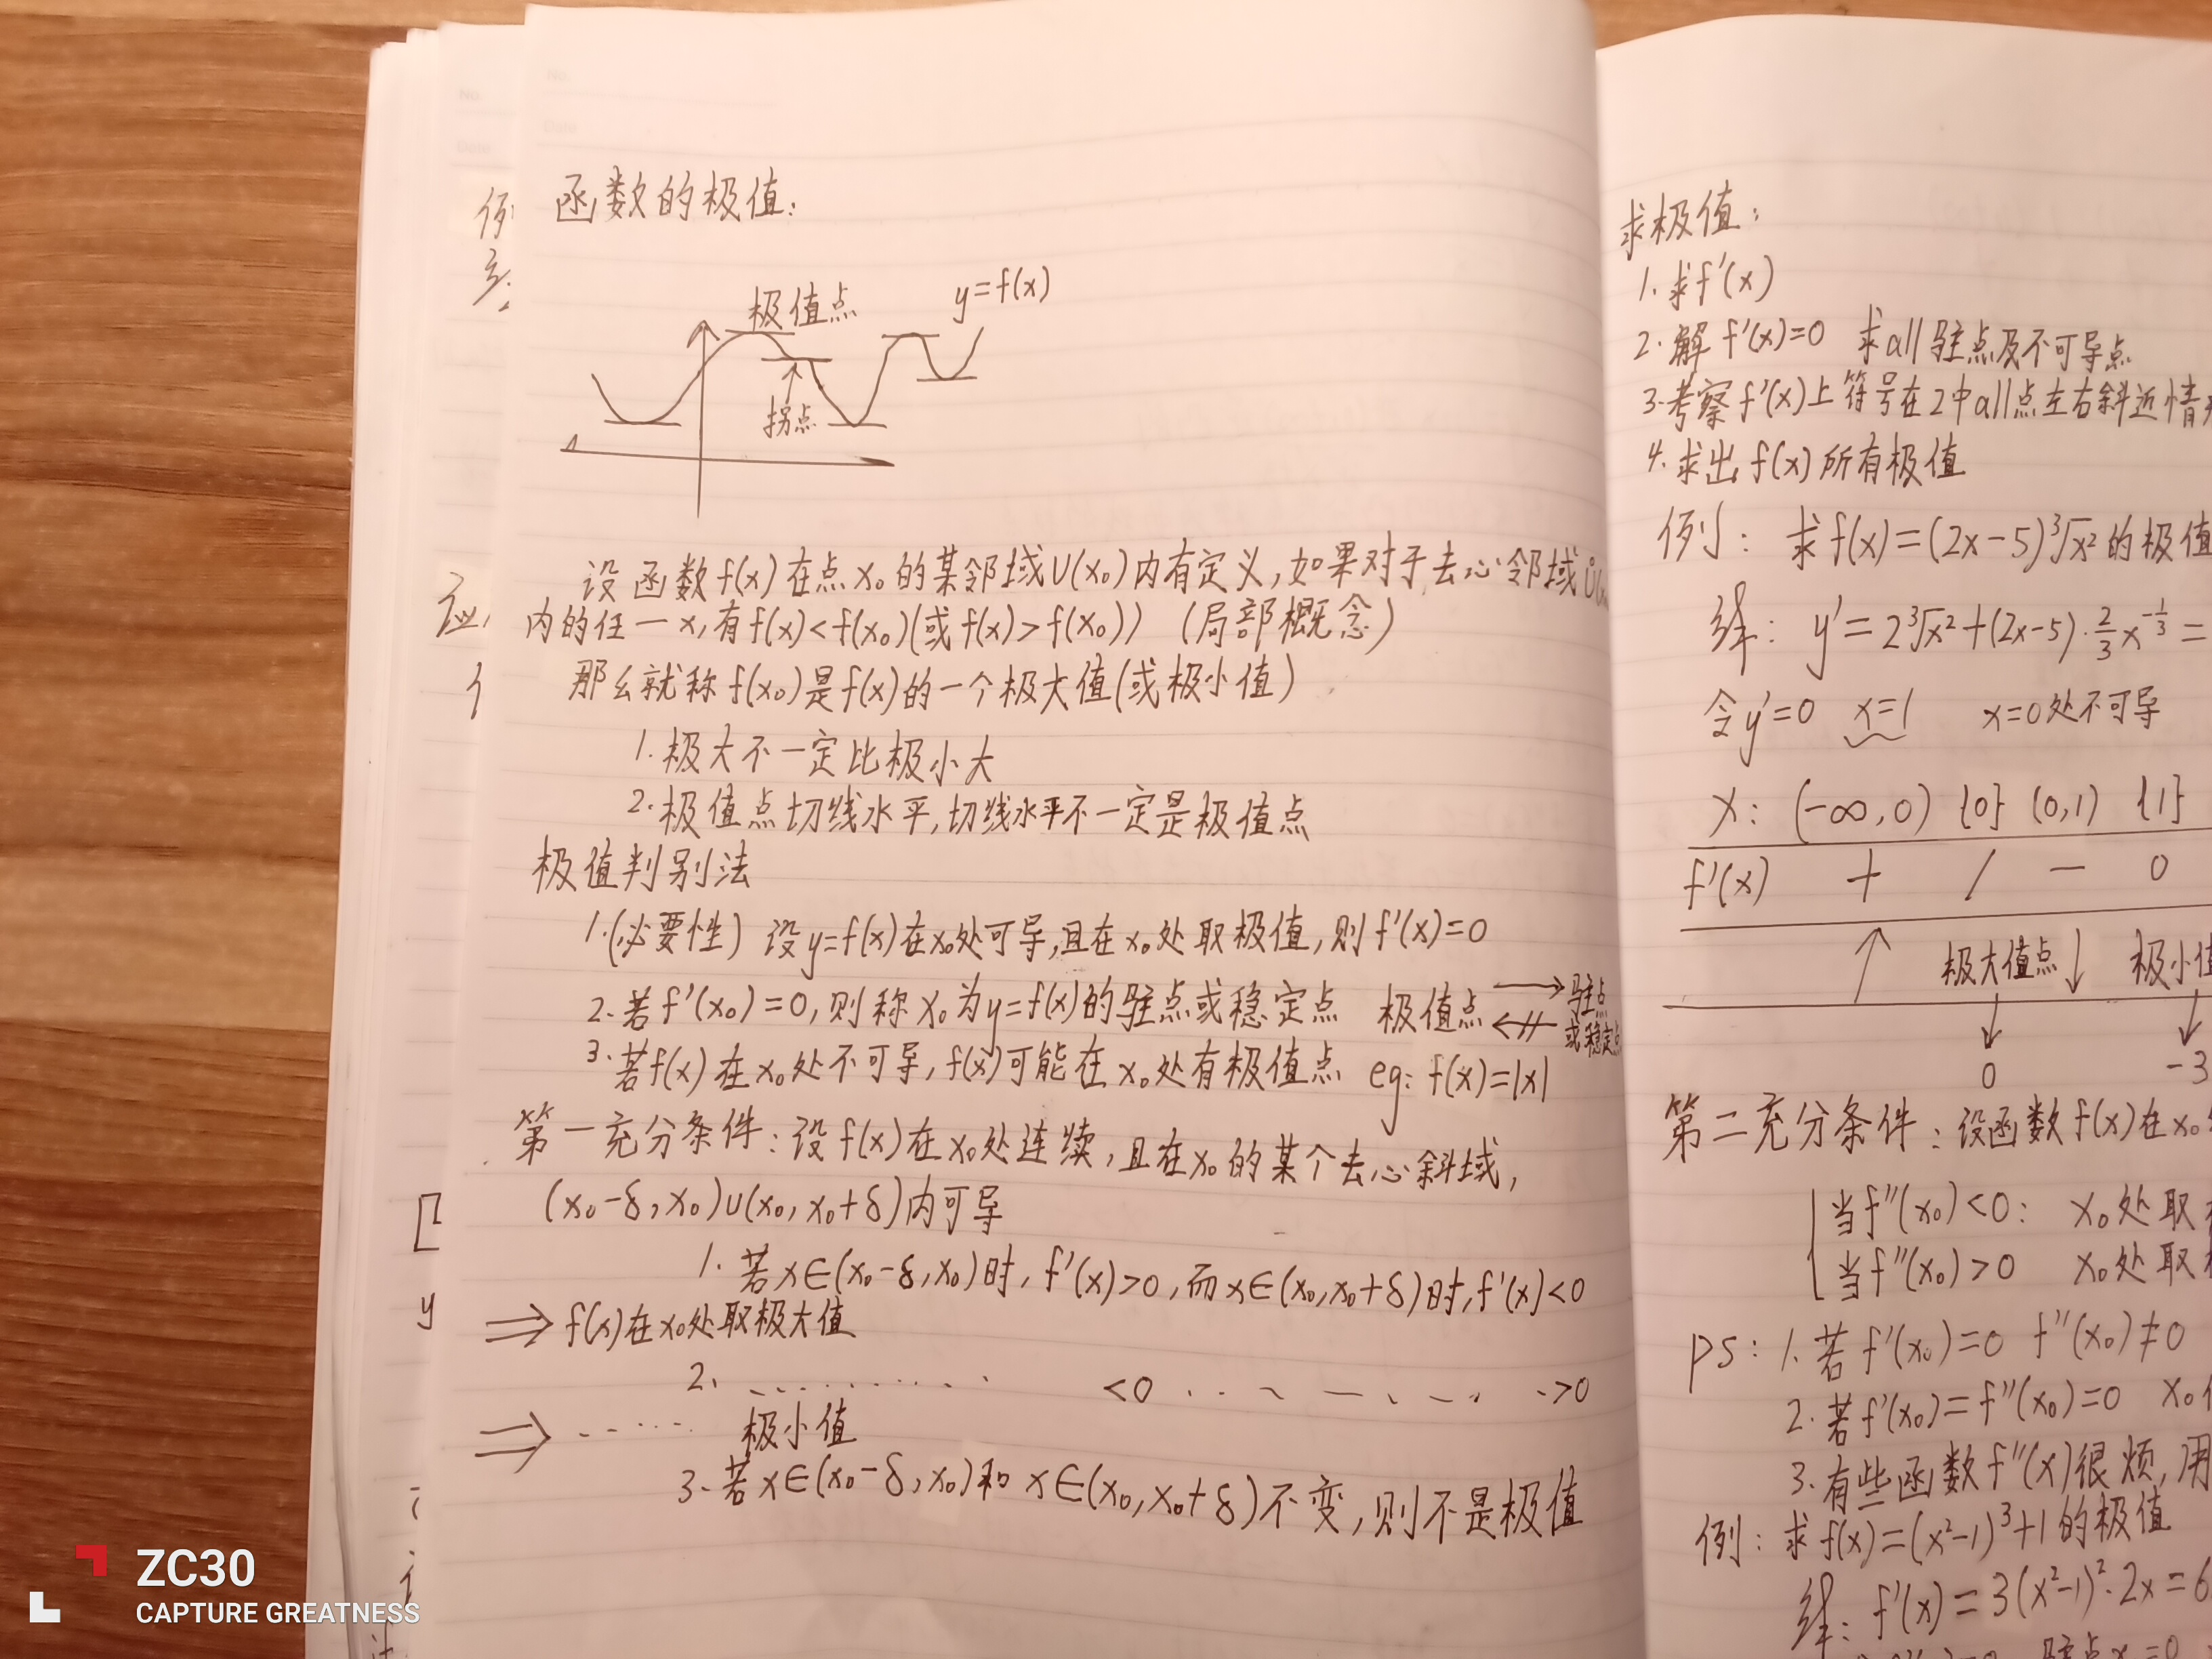 函数的极值:
极值点
y=f(x)
拐点
设函数f(x)在点x₀的某邻域U(x₀)内有定义,如果对于去心邻域Ů(x₀
内的任一x,有f(x)<f(x₀)(或f(x)>f(x₀)) (局部概念)
那么就称f(x₀)是f(x)的一个极大值(或极小值)
1.极大不一定比极小大
2.极值点切线水平,切线水平不一定是极值点
极值判别法
1.(必要性) 设y=f(x)在x₀处可导,且在x₀处取极值,则f'(x)=0
2.若f'(x₀)=0,则称x₀为y=f(x)的驻点或稳定点 极值点 驻点
或稳定点
3.若f(x)在x₀处不可导,f(x)可能在x₀处有极值点 eg: f(x)=|x|
第一充分条件:设f(x)在x₀处连续,且在x₀的某个去心斜域,
(x₀-δ,x₀)∪(x₀,x₀+δ)内可导
1.若x∈(x₀-δ,x₀)时,f'(x)>0,而x∈(x₀,x₀+δ)时,f'(x)<0
⇒ f(x)在x₀处取极大值
2. ………… <0 ………… >0
⇒ …… 极小值
3.若x∈(x₀-δ,x₀)和x∈(x₀,x₀+δ)不变,则不是极值
求极值:
1.求f'(x)
2.解f'(x)=0 求all驻点及不可导点
3.考察f'(x)上符号在2中all点左右斜近情
4.求出f(x)所有极值
例: 求f(x)=(2x-5)∛x²的极值
解: y'=2∛x²+(2x-5)·⅔x^(-1/3)=
令y'=0 x=1 x=0处不可导
x: (-∞,0) {0} (0,1) {1}
f'(x) + / - 0
↑ 极大值点 ↓ 极小值
↓ ↓
0 -3
第二充分条件:设函数f(x)在x₀
当f''(x₀)<0: x₀处取
当f''(x₀)>0 x₀处取
ps: 1.若f'(x₀)=0 f''(x₀)≠0
2.若f'(x₀)=f''(x₀)=0 x₀
3.有些函数f''(x)很烦,用
例:求f(x)=(x²-1)³+1的极值
解: f'(x)=3(x²-1)²·2x=6
驻点x=0
ZC30
CAPTURE GREATNESS